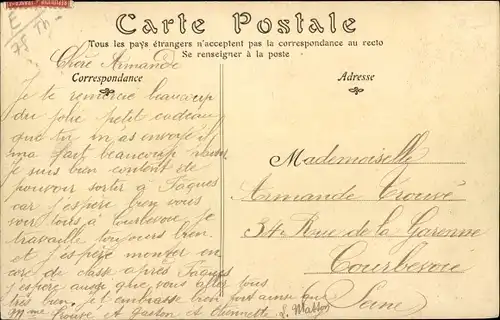 E
78 Th -
Carte Postale
Tous les pays étrangers n'acceptent pas la correspondance au recto
Se renseigner à la poste
Correspondance
Adresse
Chère Armande
Je te remercie beaucoup
du jolie petit cadeau
que tu m'as envoyé il
ma fait beaucoup
Je suis bien content de
pouvoir sortir à Paques
car j'espère bien vous
voir tous à Courbevoie Je
travaille toujours bien
et j'espère monter en
core de classe après Paques
j'espère aussi que vous allez tous
très bien. Je t'embrasse bien fort ainsi que
Mme Trouvé et Gaston et
Mademoiselle
Armande Trouvé
34 Rue de la Garenne
Courbevoie
Seine